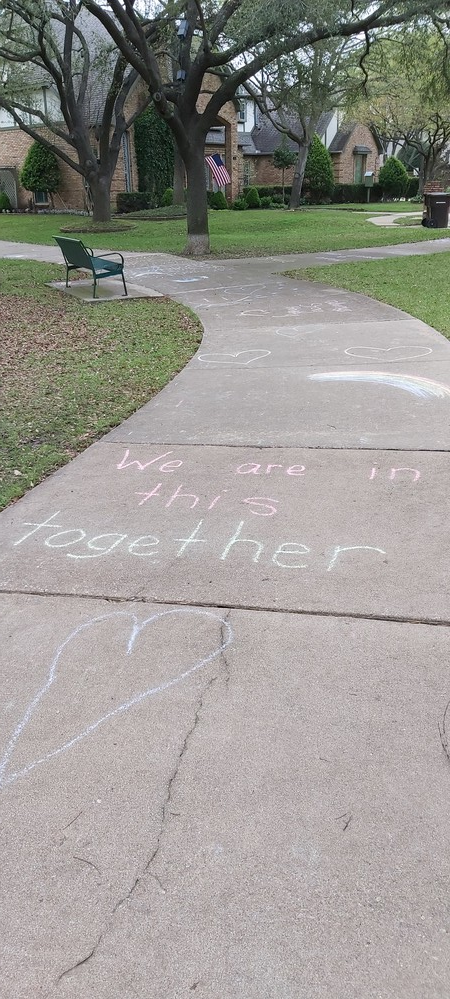 We are in
this
together